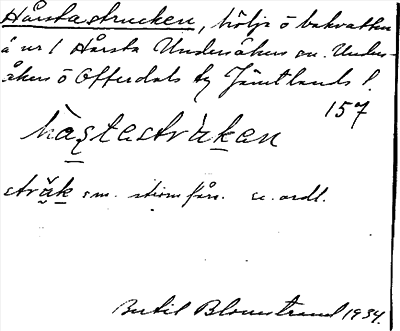 Hårstastrucken, hölja o bakvatten
å nr 1 Hårsta Undersåkers sn. Unders-
åkers o Offerdals tg Jämtlands l.
157
hàs̩testràken
sträk sm. strömfåra. se ordl.
Bertil Blomstrand 1934.